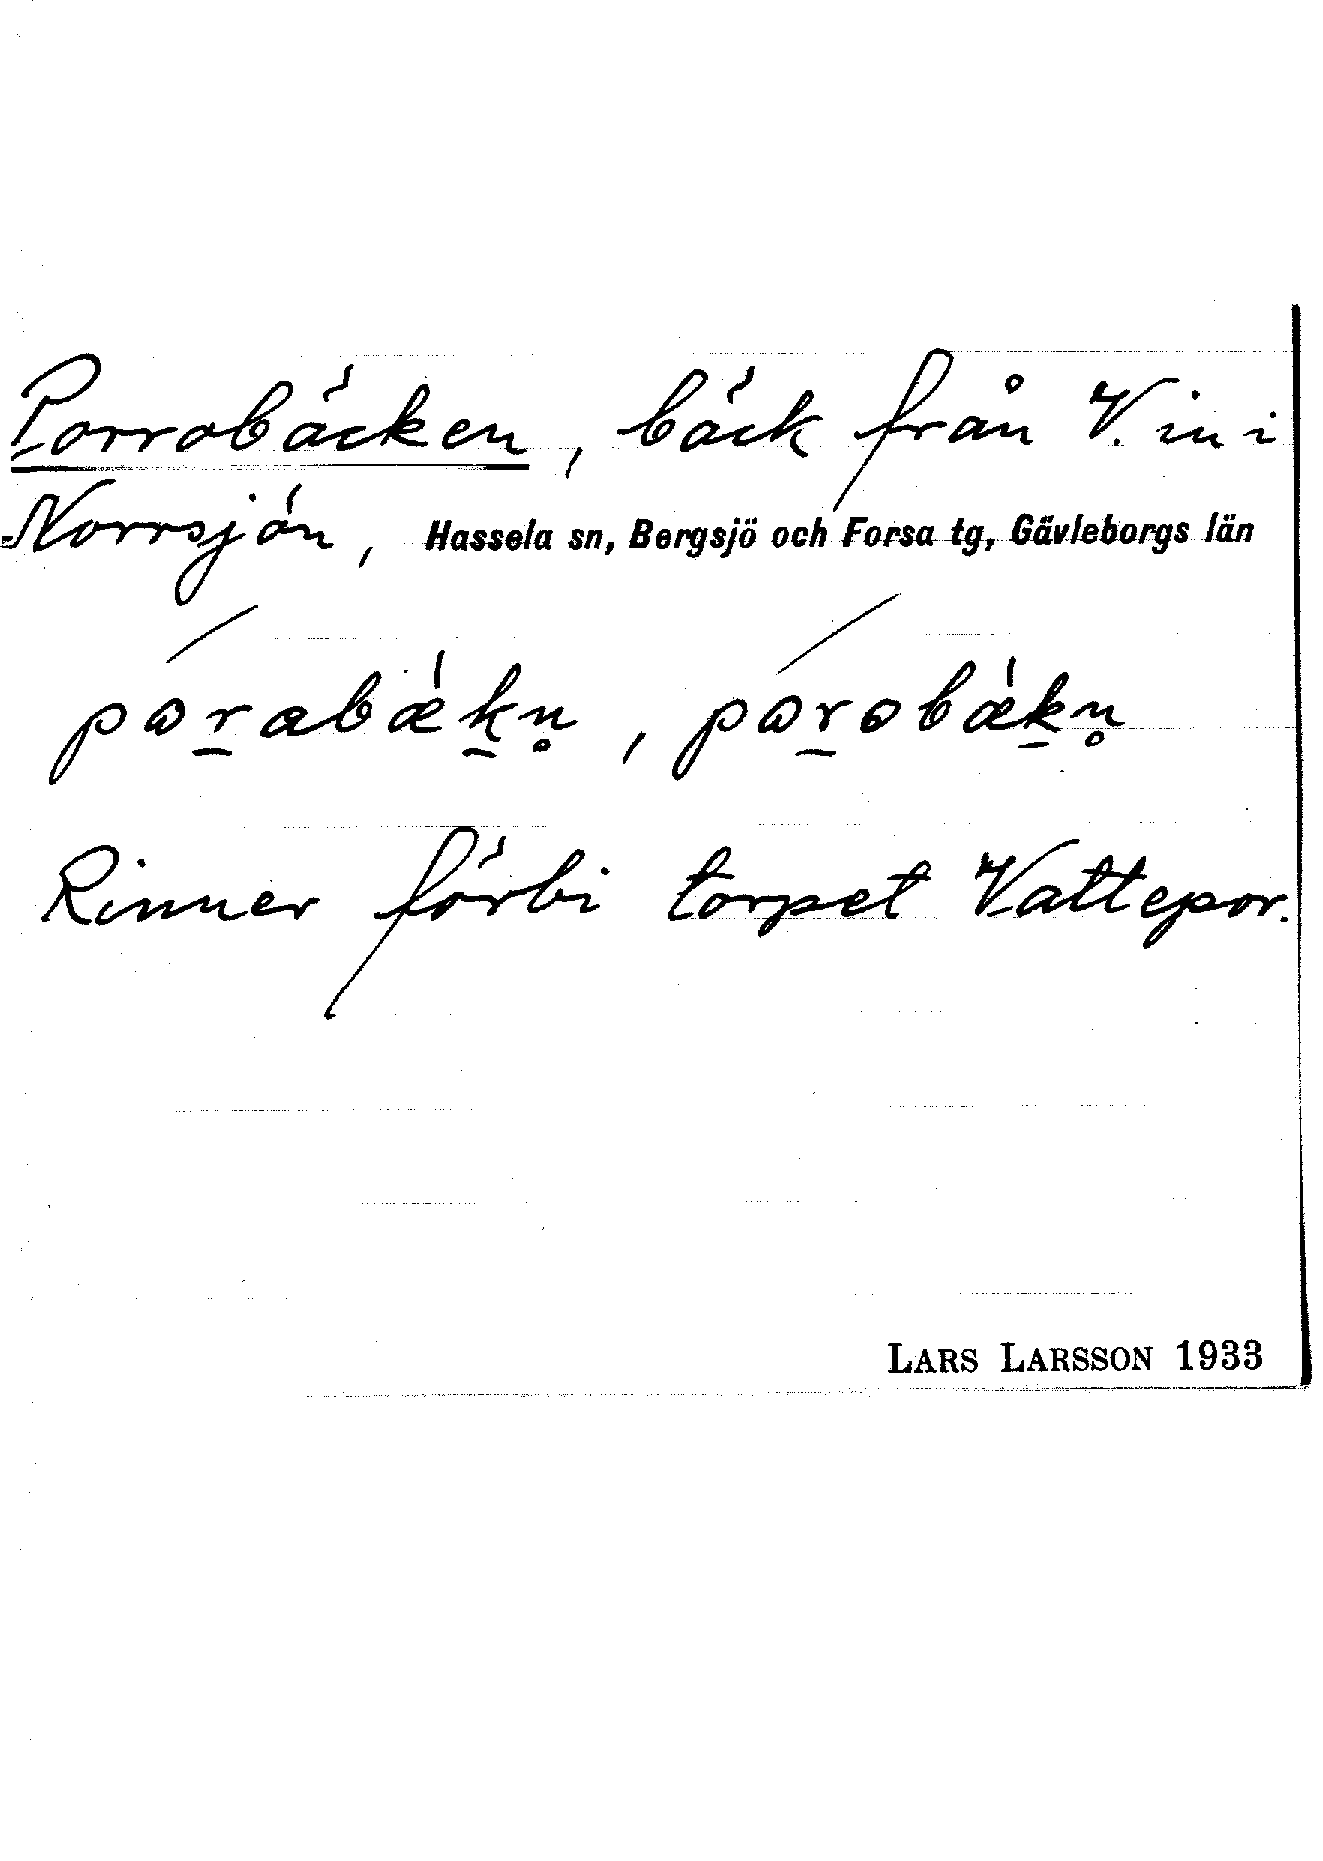 Porrobäcken, bäck från V. in i
Norrsjön, Hassela sn, Bergsjö och Forsa tg, Gävleborgs län
pɷ́r̲abæ̀k̲n̥, pɷ́r̲obæ̀k̲n̥
Rinner förbi torpet Vattepor.
LARS LARSSON 1933